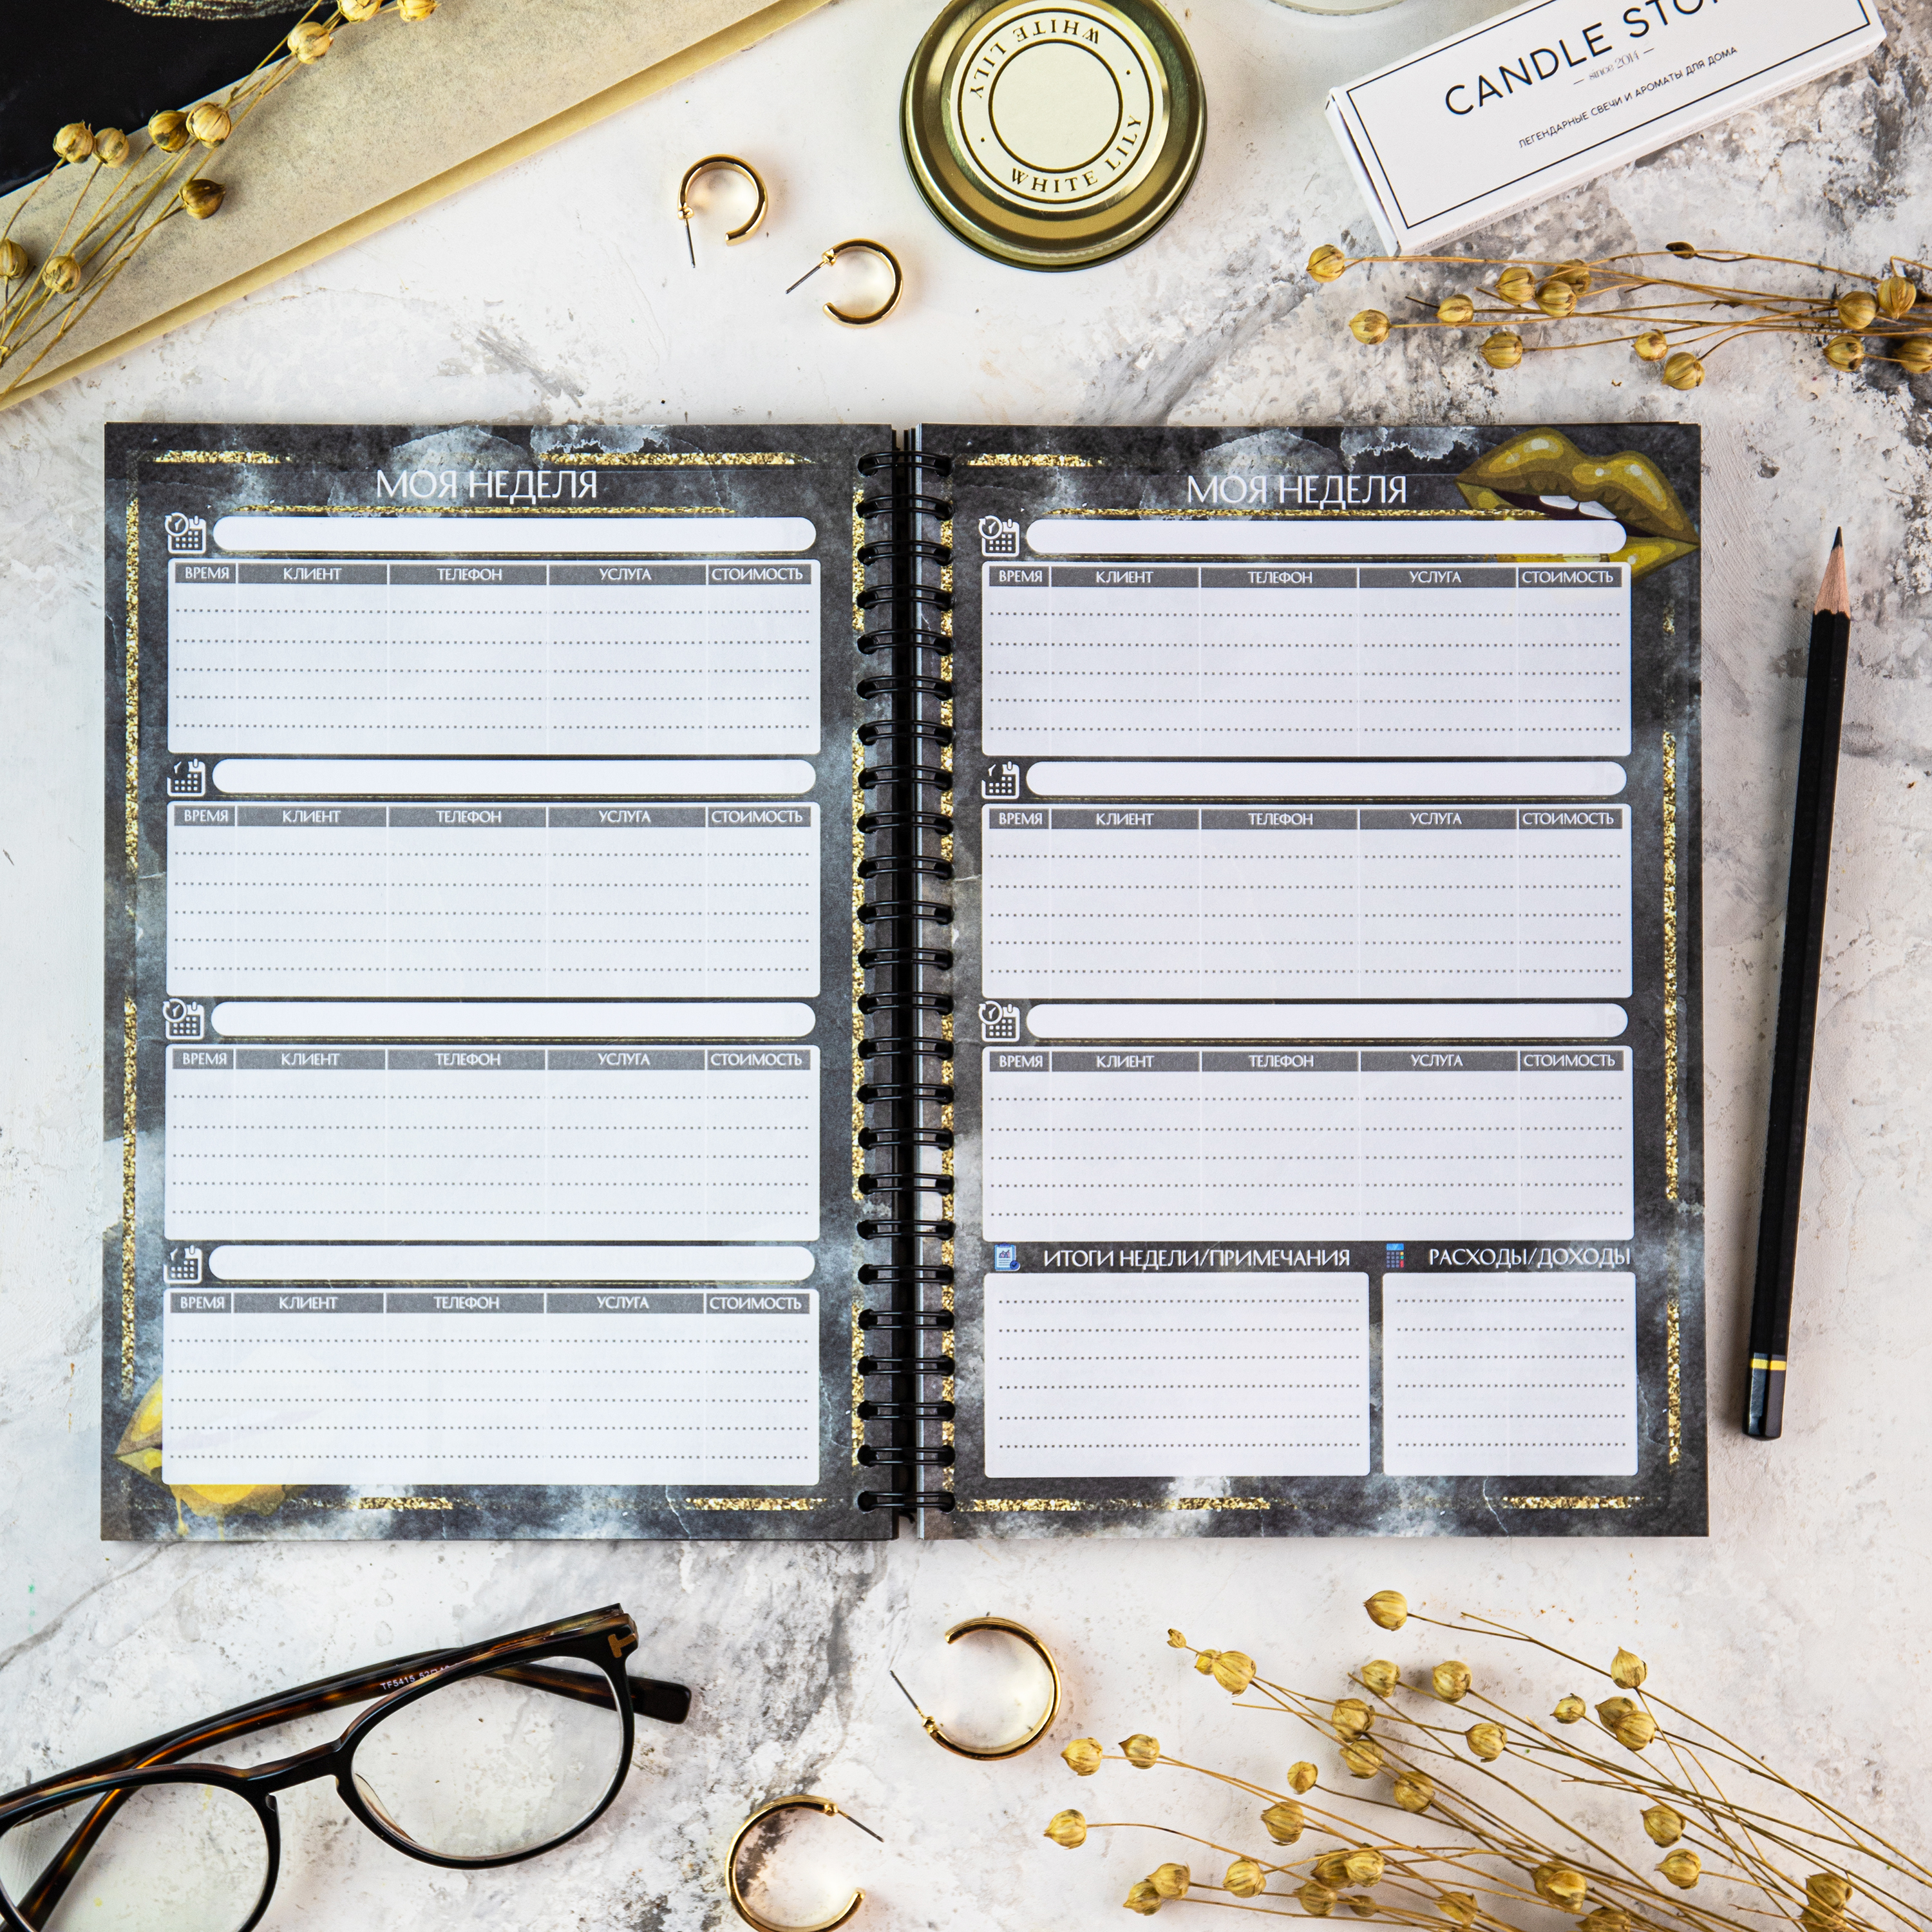 WHITE LILY
WHITE LILY
CANDLE
since 2014
ЛЕГЕНДАРНЫЕ СВЕЧИ И АРОМАТЫ ДЛЯ ДОМА
МОЯ НЕДЕЛЯ
ВРЕМЯ КЛИЕНТ ТЕЛЕФОН УСЛУГА СТОИМОСТЬ
ВРЕМЯ КЛИЕНТ ТЕЛЕФОН УСЛУГА СТОИМОСТЬ
ВРЕМЯ КЛИЕНТ ТЕЛЕФОН УСЛУГА СТОИМОСТЬ
ВРЕМЯ КЛИЕНТ ТЕЛЕФОН УСЛУГА СТОИМОСТЬ
МОЯ НЕДЕЛЯ
ВРЕМЯ КЛИЕНТ ТЕЛЕФОН УСЛУГА СТОИМОСТЬ
ВРЕМЯ КЛИЕНТ ТЕЛЕФОН УСЛУГА СТОИМОСТЬ
ВРЕМЯ КЛИЕНТ ТЕЛЕФОН УСЛУГА СТОИМОСТЬ
ИТОГИ НЕДЕЛИ/ПРИМЕЧАНИЯ РАСХОДЫ/ДОХОДЫ
TF5415